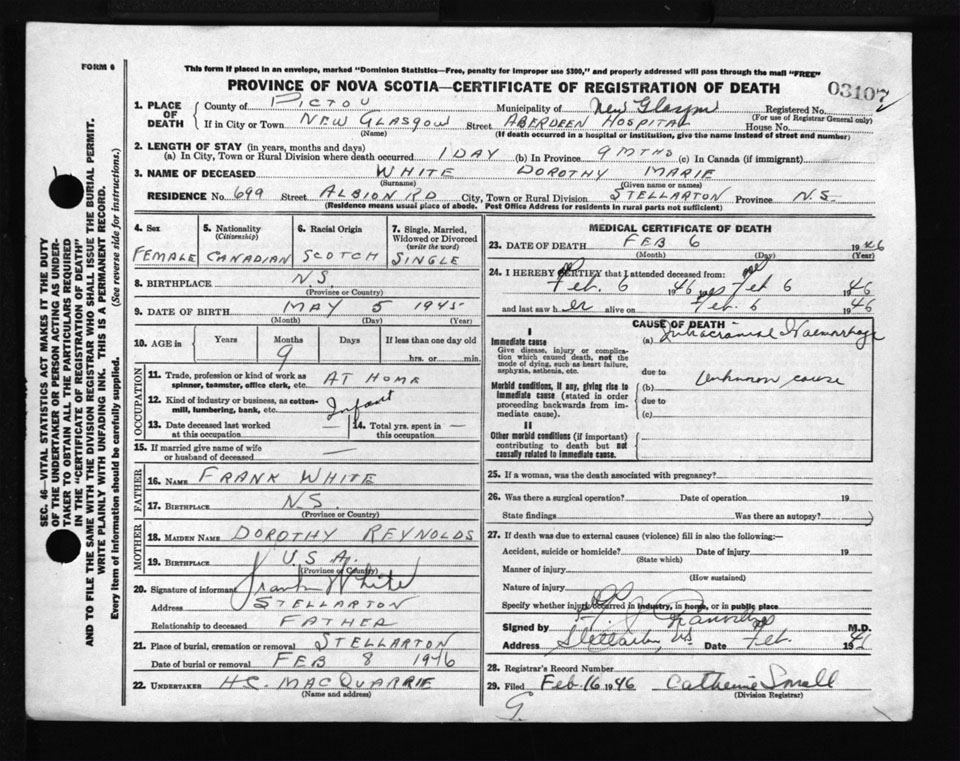 FORM 6
This form if placed in an envelope, marked "Dominion Statistics—Free, penalty for improper use $300," and properly addressed will pass through the mail "FREE"
PROVINCE OF NOVA SCOTIA—CERTIFICATE OF REGISTRATION OF DEATH
03107
1. PLACE OF DEATH County of PICTOU Municipality of New Glasgow Registered No.
(For use of Registrar General only)
If in City or Town NEW GLASGOW Street ABERDEEN HOSPITAL House No.
(Name) (If death occurred in a hospital or institution, give the name instead of street and number)
2. LENGTH OF STAY (in years, months and days)
(a) In City, Town or Rural Division where death occurred 1 DAY (b) In Province 9 MTHS (c) In Canada (if immigrant)
3. NAME OF DECEASED WHITE DOROTHY MARIE
(Surname) (Given name or names)
RESIDENCE No. 699 Street ALBION RD City, Town or Rural Division STELLARTON Province N.S.
(Residence means usual place of abode. Post Office Address for residents in rural parts not sufficient)
4. Sex 5. Nationality (Citizenship) 6. Racial Origin 7. Single, Married, Widowed or Divorced (write the word)
FEMALE CANADIAN SCOTCH SINGLE
8. BIRTHPLACE N.S.
(Province or Country)
9. DATE OF BIRTH MAY 5 1945
(Month) (Day) (Year)
10. AGE in Years Months Days If less than one day old
9 hrs. or min.
OCCUPATION
11. Trade, profession or kind of work as spinner, teamster, office clerk, etc. AT HOME
12. Kind of industry or business, as cotton-mill, lumbering, bank, etc. Infant
13. Date deceased last worked at this occupation — 14. Total yrs. spent in this occupation —
15. If married give name of wife or husband of deceased —
FATHER
16. NAME FRANK WHITE
17. BIRTHPLACE N.S.
(Province or Country)
MOTHER
18. MAIDEN NAME DOROTHY REYNOLDS
19. BIRTHPLACE U.S.A.
(Province or Country)
20. Signature of informant Frank White
Address STELLARTON
Relationship to deceased FATHER
21. Place of burial, cremation or removal STELLARTON
Date of burial or removal FEB 8 1946
22. UNDERTAKER H.S. MACQUARRIE
(Name and address)
MEDICAL CERTIFICATE OF DEATH
23. DATE OF DEATH FEB 6 1946
(Month) (Day) (Year)
24. I HEREBY CERTIFY that I attended deceased from:
Feb. 6 1946 Feb 6 1946
and last saw her alive on Feb. 6 1946
CAUSE OF DEATH
I
Immediate cause (a) Intracranial Haemorhage
Give disease, injury or complication which caused death, not the mode of dying, such as heart failure, asphyxia, asthenia, etc.
due to
Morbid conditions, if any, giving rise to immediate cause (stated in order proceeding backwards from immediate cause). (b) Unknown cause
due to
(c)
II
Other morbid conditions (if important) contributing to death but not causally related to immediate cause.
25. If a woman, was the death associated with pregnancy?
26. Was there a surgical operation? Date of operation 19
State findings Was there an autopsy?
27. If death was due to external causes (violence) fill in also the following:—
Accident, suicide or homicide? Date of injury 19
(State which)
Manner of injury
(How sustained)
Nature of injury
Specify whether injury occurred in industry, in home, or in public place
Signed by M.D.
Address Stellarton, NS Date Feb.
28. Registrar's Record Number
29. Filed Feb. 16 1946 Catherine Small
(Division Registrar)
G.
SEC. 46—VITAL STATISTICS ACT MAKES IT THE DUTY
OF THE UNDERTAKER OR PERSON ACTING AS UNDER-
TAKER TO OBTAIN ALL THE PARTICULARS REQUIRED
IN THE "CERTIFICATE OF REGISTRATION OF DEATH"
AND TO FILE THE SAME WITH THE DIVISION REGISTRAR WHO SHALL ISSUE THE BURIAL PERMIT.
WRITE PLAINLY WITH UNFADING INK. THIS IS A PERMANENT RECORD.
Every item of information should be carefully supplied. (See reverse side for instructions.)